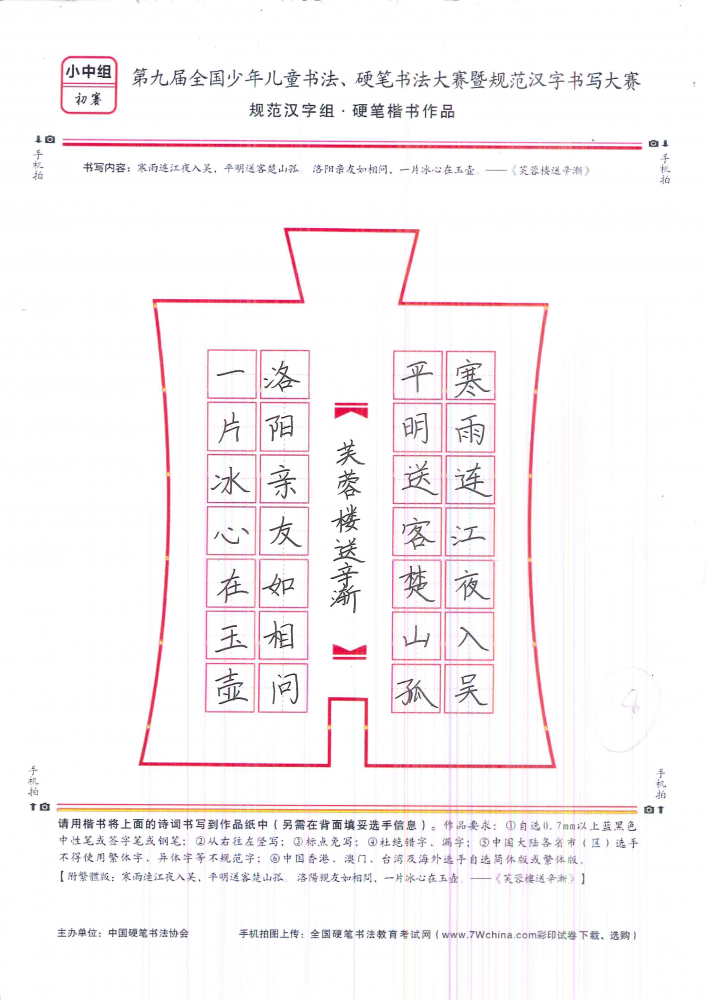 小中组
初赛
第九届全国少年儿童书法、硬笔书法大赛暨规范汉字书写大赛
规范汉字组·硬笔楷书作品
手机拍
手机拍
书写内容：寒雨连江夜入吴，平明送客楚山孤。洛阳亲友如相问，一片冰心在玉壶。——《芙蓉楼送辛渐》
寒雨连江夜入吴
平明送客楚山孤
芙蓉楼送辛渐
洛阳亲友如相问
一片冰心在玉壶
8
手机拍
手机拍
请用楷书将上面的诗词书写到作品纸中（另需在背面填妥选手信息）。作品要求：①自选0.7mm以上蓝黑色
中性笔或签字笔或钢笔；②从右往左竖写；③标点免写；④杜绝错字、漏字；⑤中国大陆各省市（区）选手
不得使用繁体字、异体字等不规范字；⑥中国香港、澳门、台湾及海外选手自选简体版或繁体版。
【附繁體版：寒雨連江夜入吴，平明送客楚山孤。洛陽親友如相問，一片冰心在玉壺。——《芙蓉樓送辛漸》】
主办单位：中国硬笔书法协会
手机拍图上传：全国硬笔书法教育考试网（www.7Wchina.com彩印试卷下载、选购）